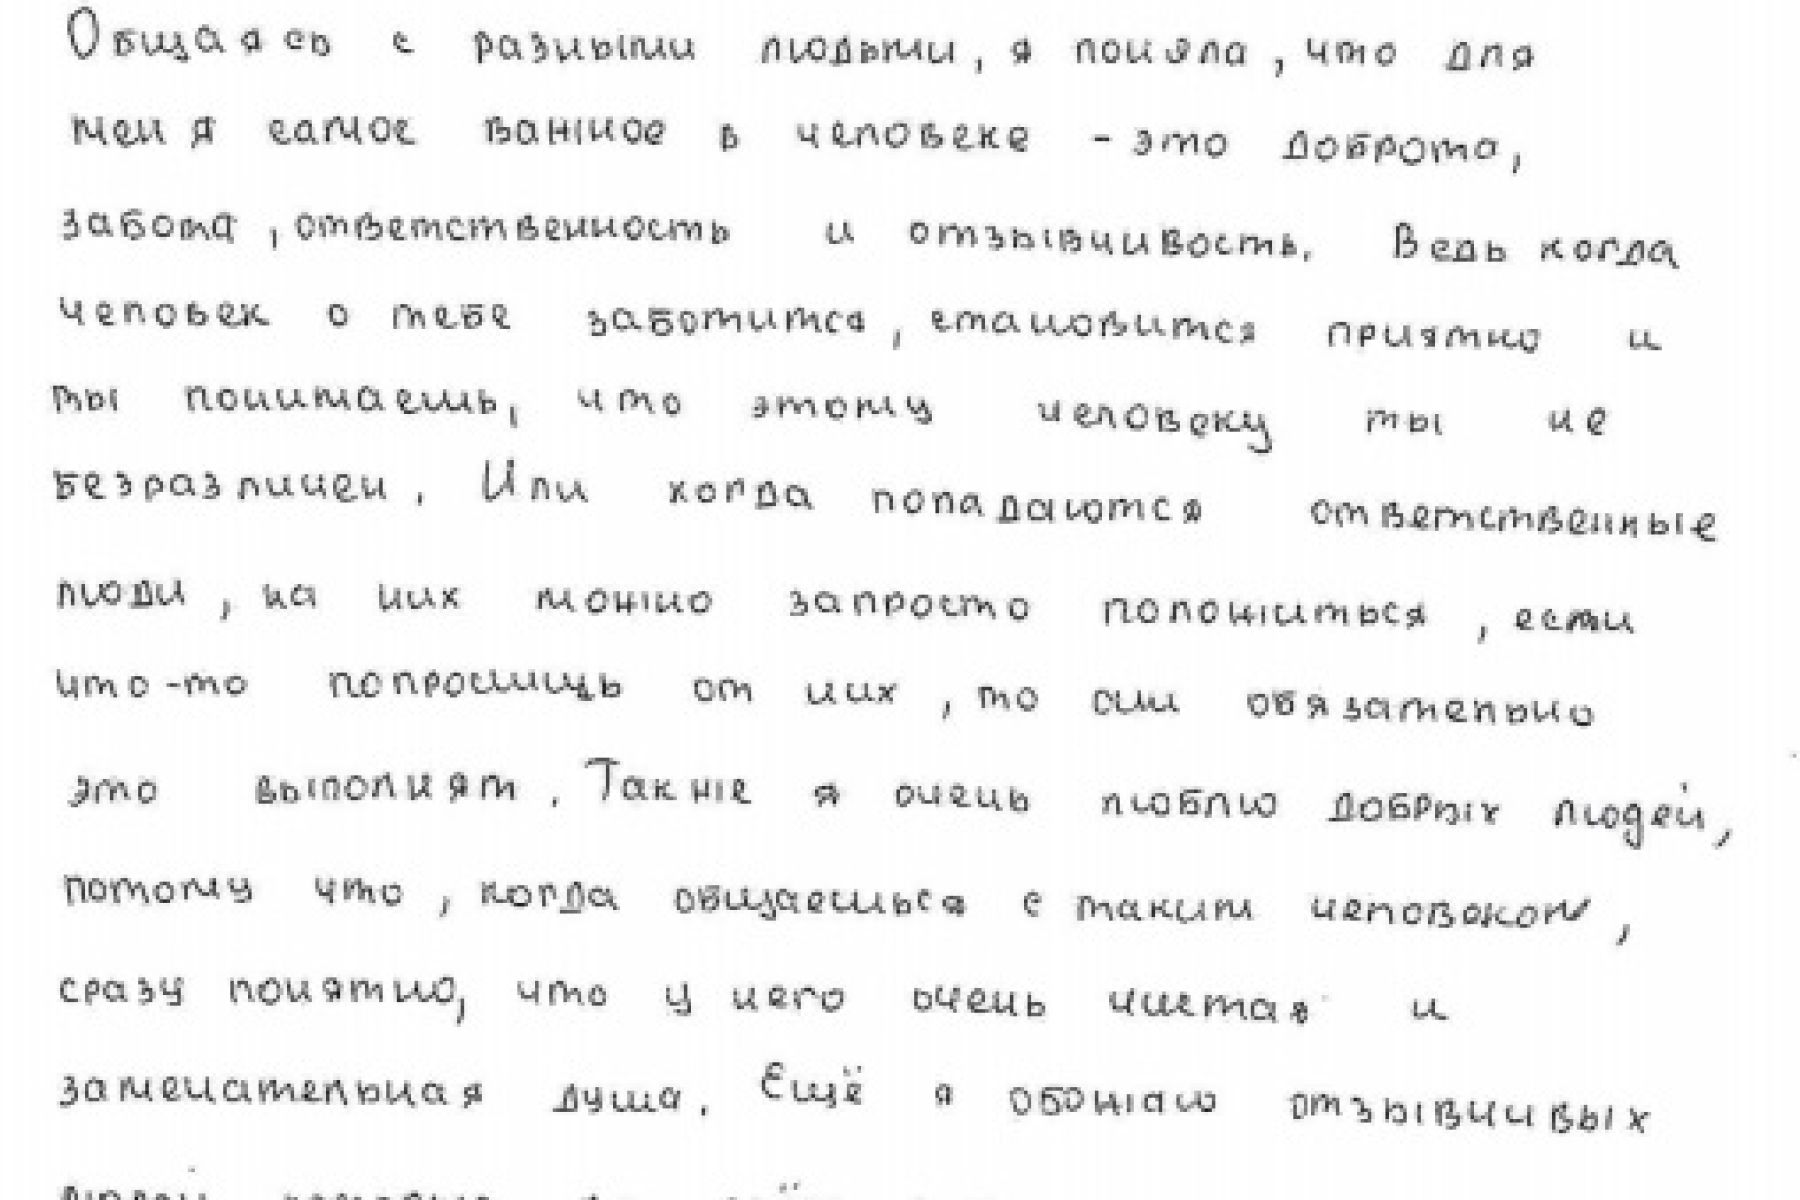 Общаясь с разными людьми, я поняла, что для
меня самое важное в человеке - это доброта,
забота, ответственность и отзывчивость. Ведь когда
человек о тебе заботится, становится приятно и
ты понимаешь, что этому человеку ты не
безразличен. Или когда попадаются ответственные
люди, на них можно запросто положиться, если
что-то попросишь от них, то они обязательно
это выполнят. Также я очень люблю добрых людей,
потому что, когда общаешься с таким человеком,
сразу понятно, что у него очень чистая и
замечательная душа. Ещё я обожаю отзывчивых
людей